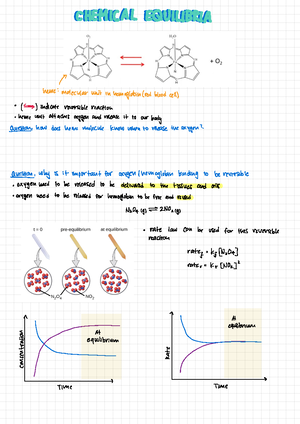 CHEMICAL EQUILIBRIA
+ O₂
heme: molecular unit in hemoglobin (red blood cell)
• ( ) indicate reversible reaction
• heme unit attaches oxygen and release it to our body
Question: how does heme molecule know when to release the oxygen?
Question: why is it important for oxygen/hemoglobin binding to be reversible
• oxygen need to be released to be delivered to the tissues and cells
• oxygen need to be released for hemoglobin to be free and reused
N₂O₄ (g) ⇌ 2NO₂ (g)
t = 0 pre-equilibrium at equilibrium
N₂O₄ NO₂
• rate law can be used for this reversible
reaction
rate_f = k_f [N₂O₄]
rate_r = k_r [NO₂]²
Concentration
At
equilibrium
Time
Rate
At
equilibrium
Time